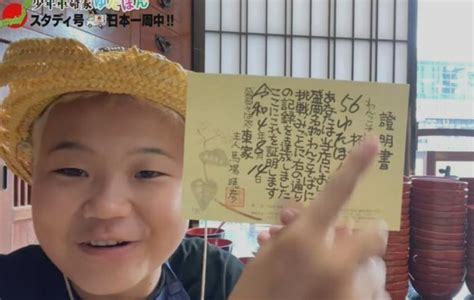 少年革命家ゆたぼん
スタディ号 日本一周中!!
證明書
わんこそ
56杯
ゆたぼん
あなたは当店に
盛岡名物わんこそばに
挑戦みごとに右の通り
の記録を達成しました
ここにこれを証明します
令和4年8月14日
東家
主人 馬場暁彦